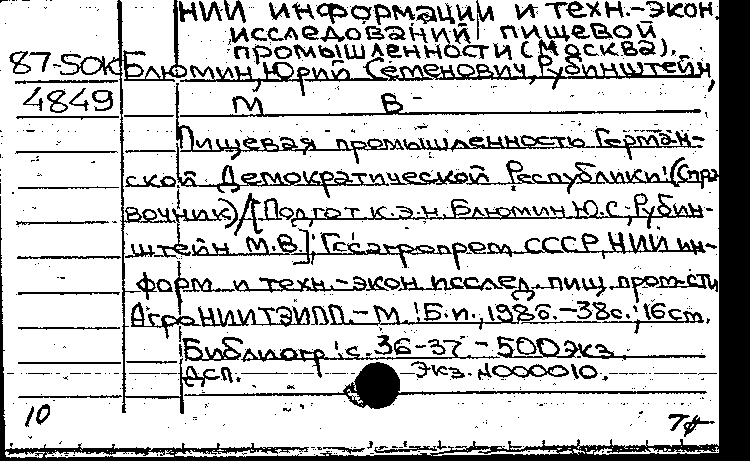 НИИ информации и техн.-экон.
исследований пищевой
промышленности (Москва).
87-50K Блюмин, Юрий Семенович, Рубинштейн,
4849 М В-
Пищевая промышленность Герман-
ской Демократической Республики: (Спра
вочник) / [Подгот. к.э.н. Блюмин Ю.С., Рубин-
штейн М.В.]; Госагропром СССР, НИИ ин-
форм. и техн.-экон. исслед. пищ. пром-сти
АгроНИИТЭИПП. - М.: Б.и., 1986. - 38с.; 16ст.
Библиогр.: с. 36-37. - 500 экз.
ДСП. Экз. N000010.
10